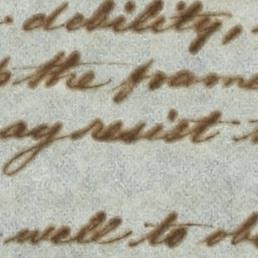 debility,
the frame
ay resist
well to ob